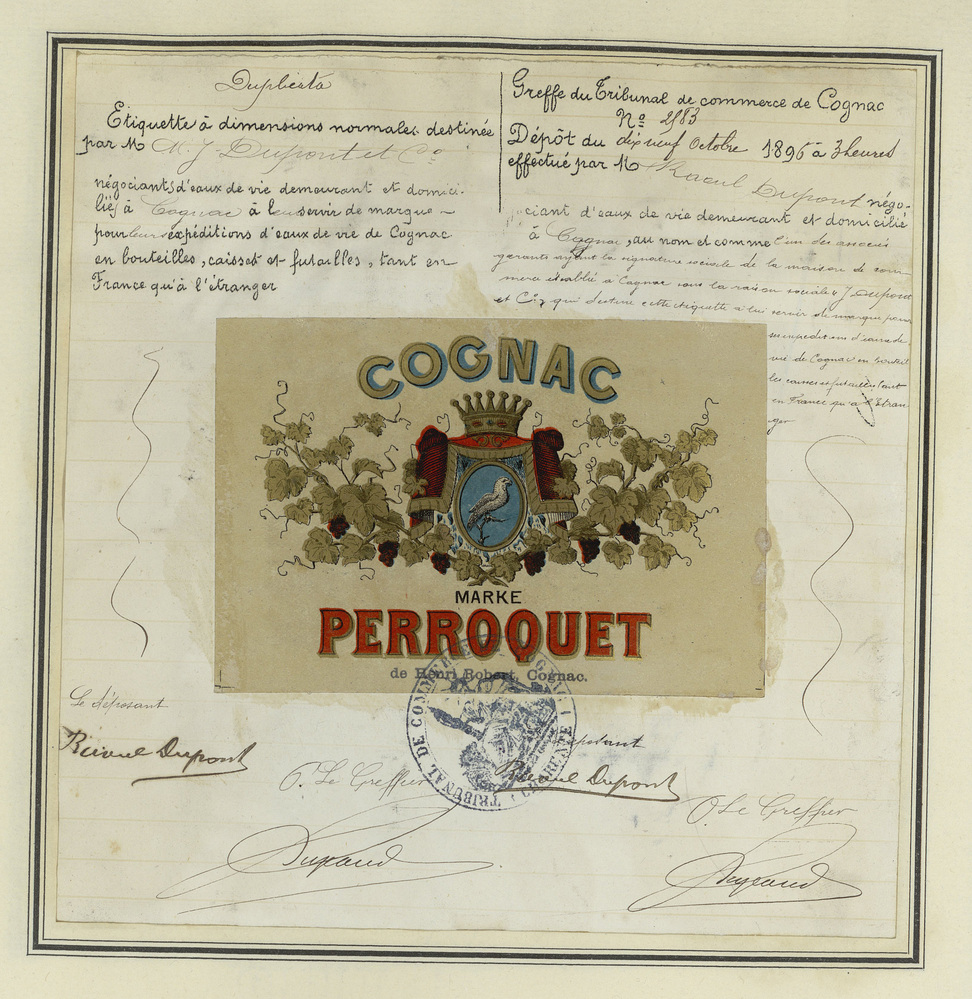 Duplicata
Etiquette à dimensions normales destinée
par M M. J. Dupont et Co
négociants d'eaux de vie demeurant et domici-
liés à Cognac à leur servir de marque
pour leurs expéditions d'eaux de vie de Cognac
en bouteilles, caisses et futailles, tant en
France qu'à l'étranger
Greffe du Tribunal de commerce de Cognac
No 2183
Dépôt du dix neuf Octobre 1896 à 3 heures
effectué par M Raoul Dupont négo-
ciant d'eaux de vie demeurant et domicilié
à Cognac, au nom et comme l'un des associés
gérants ayant la signature sociale de la maison de com-
merce établie à Cognac sous la raison sociale J Dupont
et Co, qui déclare cette étiquette à lui servir de marque pour
ses expéditions d'eaux de
vie de Cognac en bouteil
les caisses et futailles tant
en France qu'à l'étran
ger
COGNAC
MARKE
PERROQUET
de Henri Robert, Cognac.
TRIBUNAL DE COMMERCE COGNAC (CHARENTE)
Le déposant
Raoul Dupont
P. Le Greffier
Le déposant
Raoul Dupont
P. Le Greffier